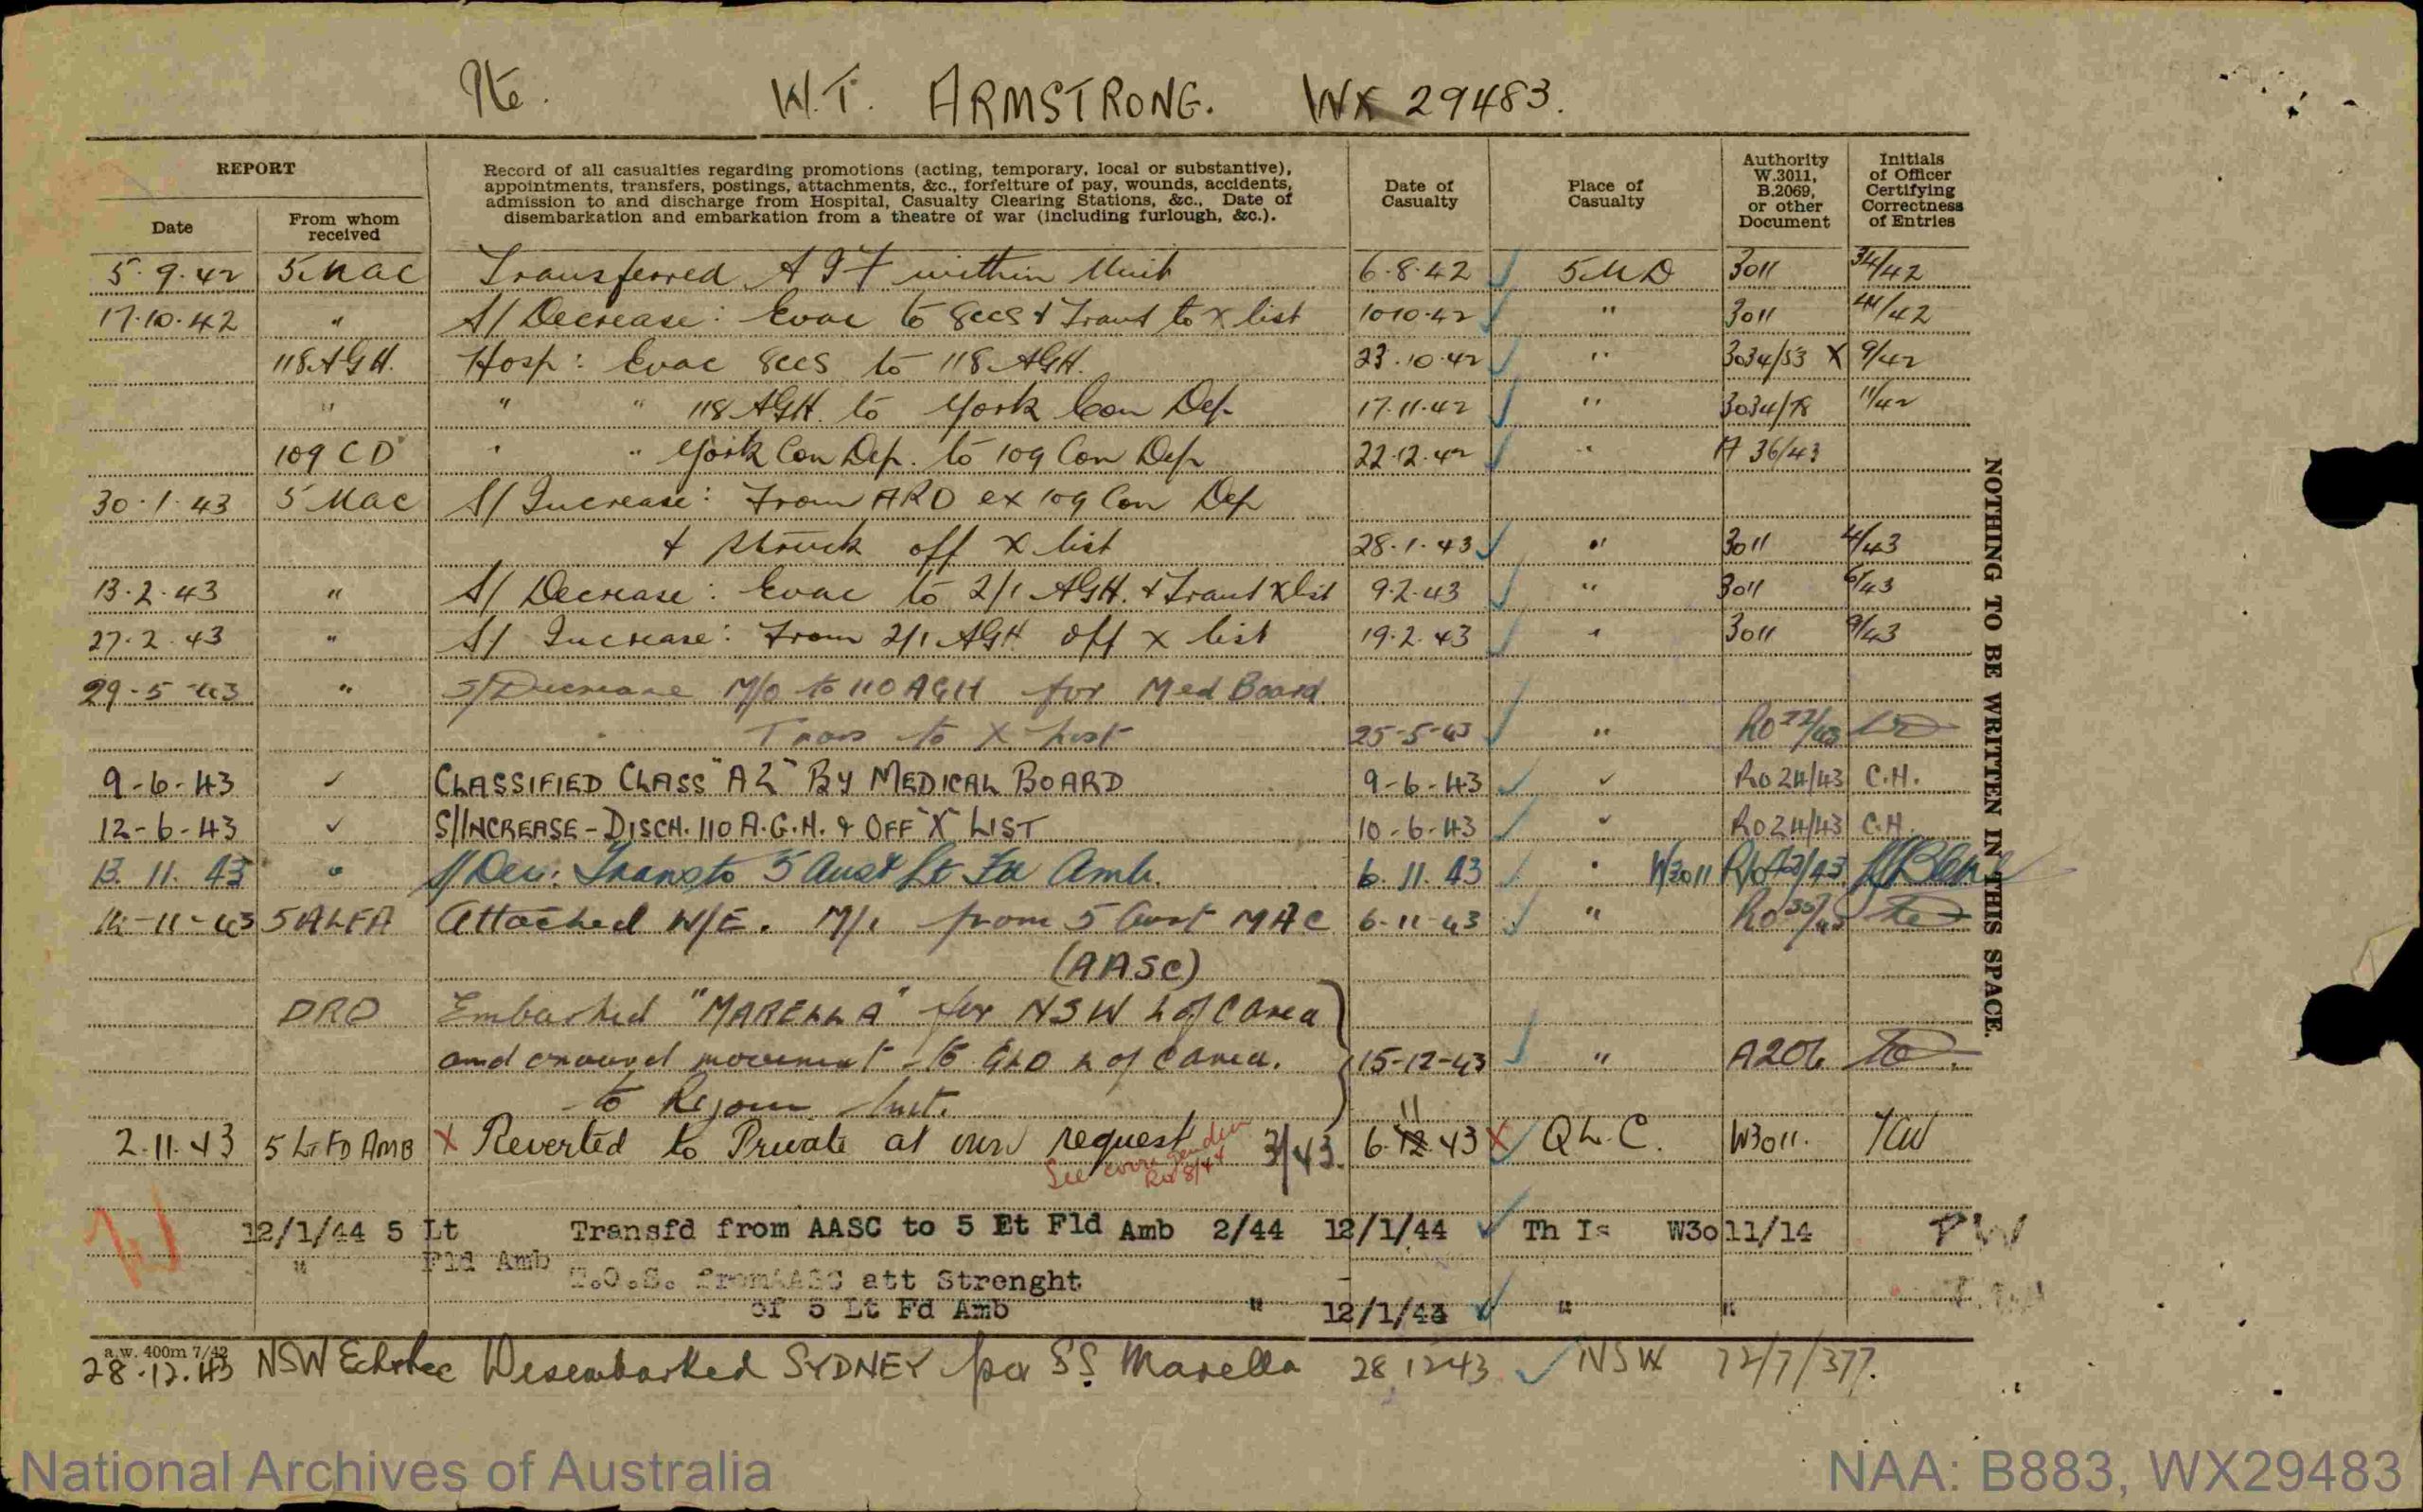 Pte. W.T. ARMSTRONG. WX 29483.
REPORT
Date
From whom received
Record of all casualties regarding promotions (acting, temporary, local or substantive),
appointments, transfers, postings, attachments, &c., forfeiture of pay, wounds, accidents,
admission to and discharge from Hospital, Casualty Clearing Stations, &c., Date of
disembarkation and embarkation from a theatre of war (including furlough, &c.).
Date of Casualty
Place of Casualty
Authority W.3011, B.2069, or other Document
Initials of Officer Certifying Correctness of Entries
5.9.42 5 MAC Transferred AIF within Unit 6.8.42 5 MD 3011 34/42
17.10.42 " S/ Decrease: Evac to 8CCS & Transf to X list 10.10.42 " 3011 41/42
118 AGH. Hosp: Evac 8CCS to 118 AGH. 23.10.42 " 3034/53 X 9/42
" " " 118 AGH. to York Con Dep. 17.11.42 " 3034/78 11/42
109 CD " " York Con Dep. to 109 Con Dep 22.12.42 " A 36/43
30.1.43 5 MAC S/ Increase: From ARD ex 109 Con Dep
& struck off X list 28.1.43 " 3011 4/43
13.2.43 " S/ Decrease: Evac to 2/1 AGH. & Transf X list 9.2.43 " 3011 6/43
27.2.43 " S/ Increase: From 2/1 AGH off X list 19.2.43 " 3011 9/43
29-5-43 " S/Decrease M/O to 110 AGH for Med Board
Trans to X list 25-5-43 " RO 22/43
9-6-43 CLASSIFIED CLASS "A2" BY MEDICAL BOARD 9-6-43 RO 24/43 C.H.
12-6-43 S/INCREASE - DISCH. 110 A.G.H. & OFF "X" LIST 10-6-43 RO 24/43 C.H.
13.11.43 " S/Dec: Trans to 5 Aust Lt Fd Amb. 6.11.43 " W3011
-11-43 5 ALFA Attached W/E. M/I from 5 Aust MAC 6-11-43 " RO
(AASC)
DRO Embarked "MARELLA" for NSW L of C area
and onward movement to QLD L of C area. 15-12-43 " A206
to Rejoin Unit.
2.11.43 5 Lt FD AMB X Reverted to Private at own request 3/43. 6.12.43 11 X Q L. C. W3011.
See corrigendum
RO 8/44
12/1/44 5 Lt Transfd from AASC to 5 Lt Fld Amb 2/44 12/1/44 Th Is W3011/14 PW
" Fld Amb T.O.S. from AASC att Strenght
of 5 Lt Fd Amb " 12/1/44 " "
a.w. 400m 7/42
28.12.43 NSW Echelon Disembarked SYDNEY per SS. Marella 28 12 43 NSW 72/7/377.
NOTHING TO BE WRITTEN IN THIS SPACE.
National Archives of Australia
NAA: B883, WX29483